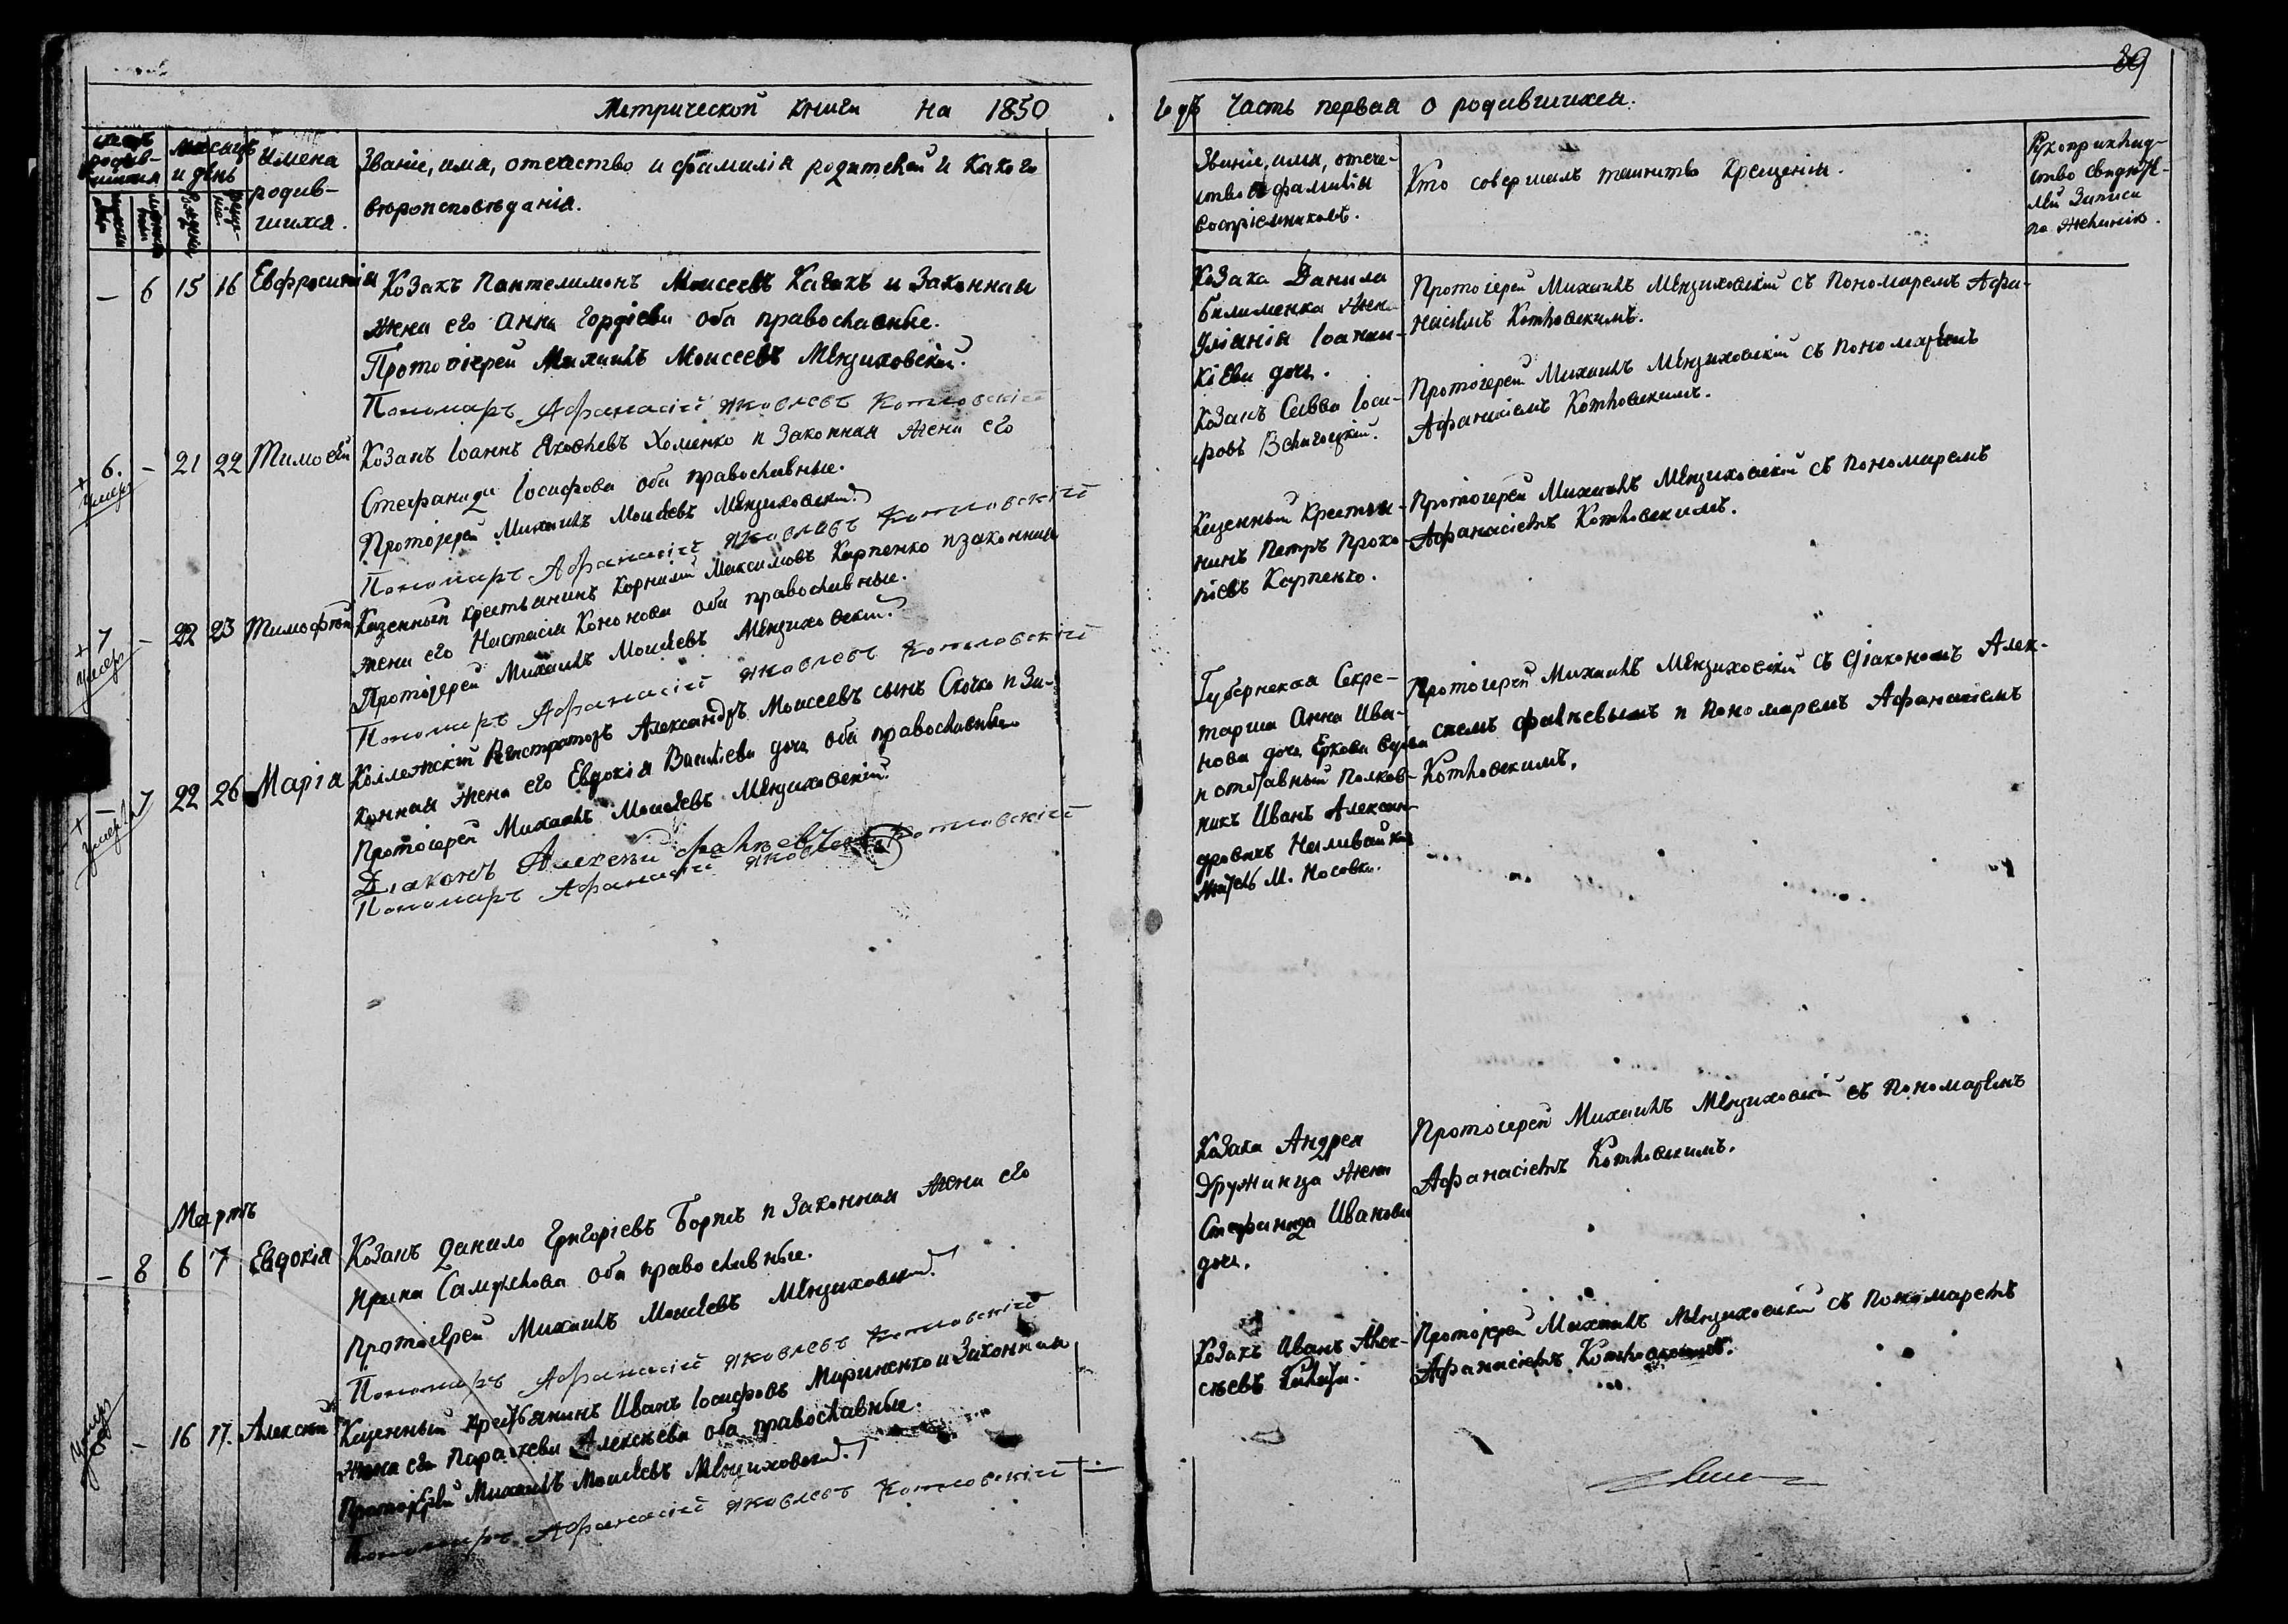 39
Метрической книги на 1850
годъ часть первая о родившихся.
Имена родив-шихся.
Званіе, имя, отечество и фамилія родителей и какого
вѣроисповѣданія.
Званіе, имя, отече-
ство и фамилія
воспріемниковъ.
Кто совершалъ таинство крещенія.
Рукоприклад-
ство свидѣте-
лей записи
по желанію.
– 6 15 16 Евфросинія Козакъ Пантелимонъ Моисеевъ и законная
жена его Анна Гордіева оба православные.
Протоіерей Михаилъ Моисеевъ Мензиховскій.
Пономарь Афанасій Яковлевъ Котловскій
Козака Данила
жена
Уліанія Іоанни-
кіева дочь.
Протоіерей Михаилъ Мензиховскій съ пономаремъ Афа-
насіемъ Котловскимъ.
+ умеръ 6. – 21 22 Тимофей Козакъ Іоаннъ Яковлевъ Хоменко и законная жена его
Стефанида Іосифова оба православные.
Протоіерей Михаилъ Моисеевъ Мензиховскій
Пономарь Афанасій Яковлевъ Котловскій
Козакъ Савва Іоси-
фовъ
Протоіерей Михаилъ Мензиховскій съ пономаремъ
Афанасіемъ Котловскимъ.
+ умеръ 7 – 22 23 Тимофей Казенный крестьянинъ Корнилій Максимовъ Карпенко и законная
жена его Настасія Кононова оба православные.
Протоіерей Михаилъ Моисеевъ Мензиховскій
Пономарь Афанасій Яковлевъ Котловскій
Казенный крестья-
нинъ Петръ Проко-
піевъ Карпенко.
Протоіерей Михаилъ Мензиховскій съ пономаремъ
Афанасіемъ Котловскимъ.
+ умерла – 7 22 26 Марія Коллежскій Регистраторъ Александръ Моисеевъ сынъ Скочко и за-
конная жена его Евдокія Васильева дочь оба православные
Протоіерей Михаилъ Моисеевъ Мензиховскій.
Діаконъ Алексей
Пономарь Афанасій Яковлевъ Котловскій
Губернская Секре-
тарша Анна Ива-
нова дочь
и отставный Полков-
никъ Иванъ Алексан-
дровичъ
житель М. Носовки.
Протоіерей Михаилъ Мензиховскій съ діакономъ Алек-
сіемъ и пономаремъ Афанасіемъ
Котловскимъ.
Мартъ
– 8 6 7 Евдокія Козакъ Данило Григоріевъ и законная жена его
Ирина Самуилова оба православные.
Протоіерей Михаилъ Моисеевъ Мензиховскій
Пономарь Афанасій Яковлевъ Котловскій
Козака Андрея
Дружинца жена
Стефанида Иванова
дочь.
Протоіерей Михаилъ Мензиховскій съ пономаремъ
Афанасіемъ Котловскимъ.
умеръ – 16 17. Алексѣй Казенный крестьянинъ Иванъ Іосифовъ Мариненко и законная
жена его Параскева Алексѣева оба православные.
Протоіерей Михаилъ Моисеевъ Мензиховскій
Пономарь Афанасій Яковлевъ Котловскій
Козакъ Иванъ Алек-
сѣевъ
Протоіерей Михаилъ Мензиховскій съ пономаремъ
Афанасіемъ Котловскимъ.